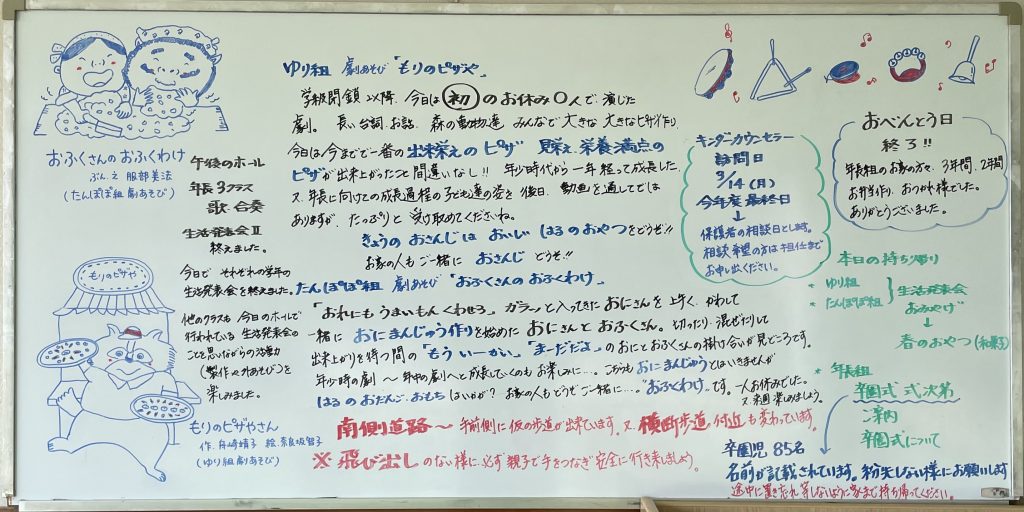 おふくさんのおふくわけ
ぶん、え 服部美法
(たんぽぽ組 劇あそび)
もりのピザや
もりのピザやさん
作.舟崎靖子 絵.奈良坂智子
(ゆり組 劇あそび)
午後のホール
年長3クラス
歌・合奏
生活発表会Ⅱ
終えました。
今日で それぞれの学年の
生活発表会を終えました。
他のクラスも 今日のホールで
行われている 生活発表会の
ことを思いながらの活動
(製作や外あそび)を
楽しみました。
ゆり組 劇あそび「もりのピザや」
学級閉鎖以降、今日は初のお休み0人で演じた
劇。長い台詞、お話、森の動物達 みんなで大きな 大きなピザ作り。
今日は今までで一番の出来栄えのピザ 見栄え、栄養満点の
ピザが出来上がったこと間違いなし!! 年少時代から一年経って成長した、
又、年長に向けての成長過程の子ども達の姿を 後日、動画を通してでは
ありますが、たっぷりと 受け取めてくださいね。
きょうの おさんじは おいしい はるのおやつをどうぞ!!
お家の人もご一緒に おさんじ どうぞ!!
たんぽぽ組 劇あそび「おふくさんのおふくわけ」
「おれにもうまいもんくわせろ」ガラッと入ってきたおにさんを上手く、かわして
一緒に おにまんじゅう作りを始めた おにさんとおふくさん。切ったり、混ぜたりして
出来上がりを待つ間の「もういーかい」「まーだだよ」のおにとおふくさんの掛け合いが見どころです。
年少時の劇〜年中の劇へと成長していくのもお楽しみに…。こちらもおにまんじゅうとはいきませんが
はるの おだんご、おもち はいかが? お家の人もどうぞご一緒に…。"おふくわけ"です。一人お休みでした。
又来週楽しみましょう。
南側道路〜手前側に仮の歩道が出来ています。又、横断歩道付近も変わっています。
※飛び出しのない様に必ず親子で手をつなぎ安全に行き来しましょう。
キンダーカウンセラー
訪問日
3/14(月)
今年度最終日
↓
保護者の相談日とします。
相談希望の方は担任まで
お申し出ください。
おべんとう日
終了!!
年長組のお家の方々、3年間、2年間
お弁当作り、おつかれ様でした。
ありがとうございました。
本日の持ち帰り
* ゆり組
* たんぽぽ組
生活発表会
おみやげ
↓
春のおやつ(和菓子)
* 年長組
卒園式 式次第
ご案内
卒園式について
卒園児 85名
名前が記載されています。紛失しない様にお願いします
途中に置き忘れ等しないようにお家まで持ち帰ってください。